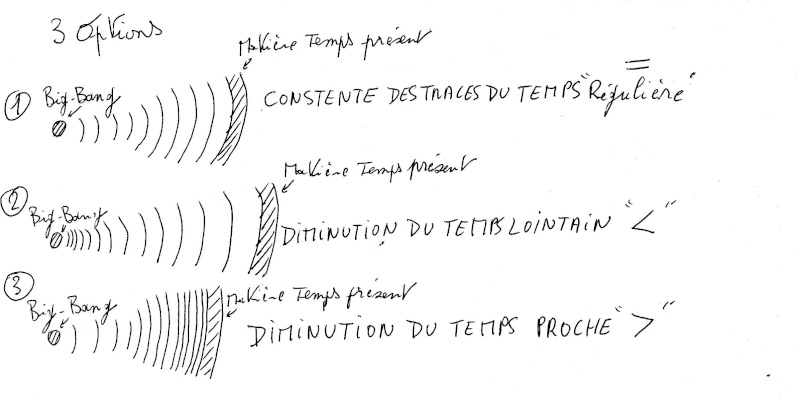 3 Options
Matière Temps présent
① Big-Bang
CONSTENTE DES TRACES DU TEMPS "Régulière" =
Matière Temps présent
② Big-Bang
DIMINUTION DU TEMPS LOINTAIN "<"
③ Matière Temps présent
Big-Bang
DIMINUTION DU TEMPS PROCHE ">"